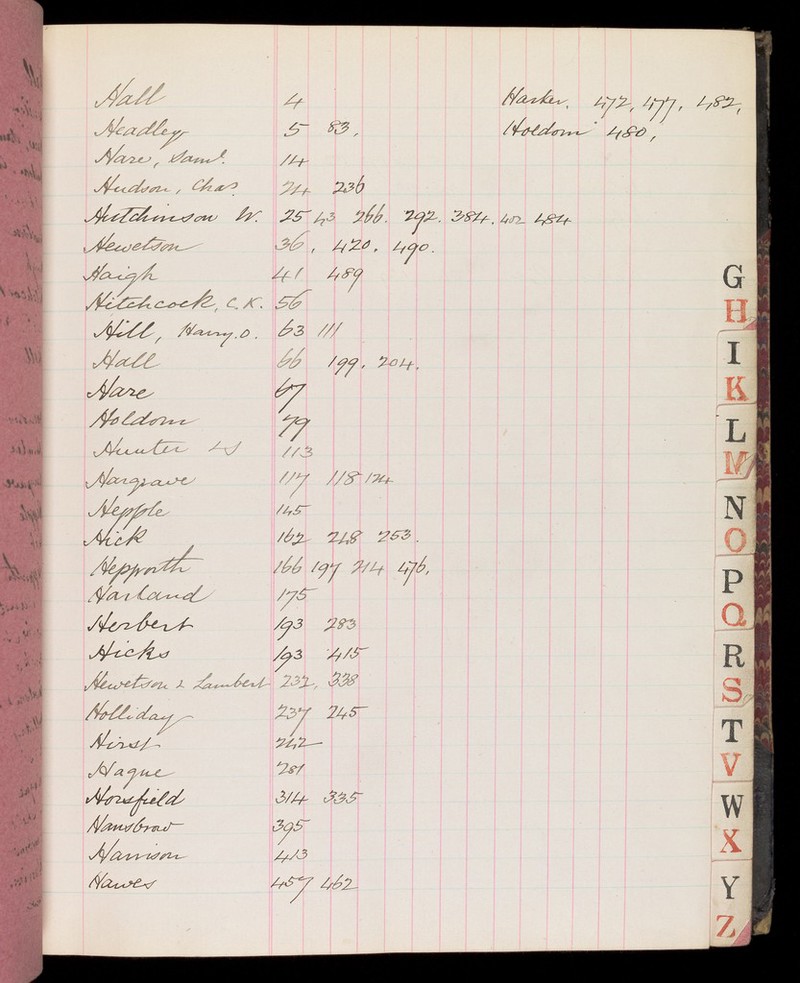 Hall 4
Headley 5 83.
Hare, Saml. 14
Hudson, Chas. 24 236
Hutchinson W. 25 43 266. 292. 384. 402 484
Hewetson 36. 420. 490.
Haigh 41 489
Hitchcock, C. K. 56
Hill, Harry. O. 63 111
Hall 66 199. 204.
Hare 67
Holdom 79
Hunter 113
Hargrave 117 118 124
Hepple 145
Hick 162 218 253.
Hepworth 166 197 214 476.
Harland 175
Herbert 193 283
Hicks 193 415
Hewetson & Lambert 232. 338
Holliday 237 245
Hirst 242
Hague 281
Horsfield 314 335
Hansbrow 395
Harrison 413
Hawes 457 462
Harker. 472, 477. 482,
Holdom 480,
G
H
I
K
L
M
N
O
P
Q
R
S
T
V
W
X
Y
Z